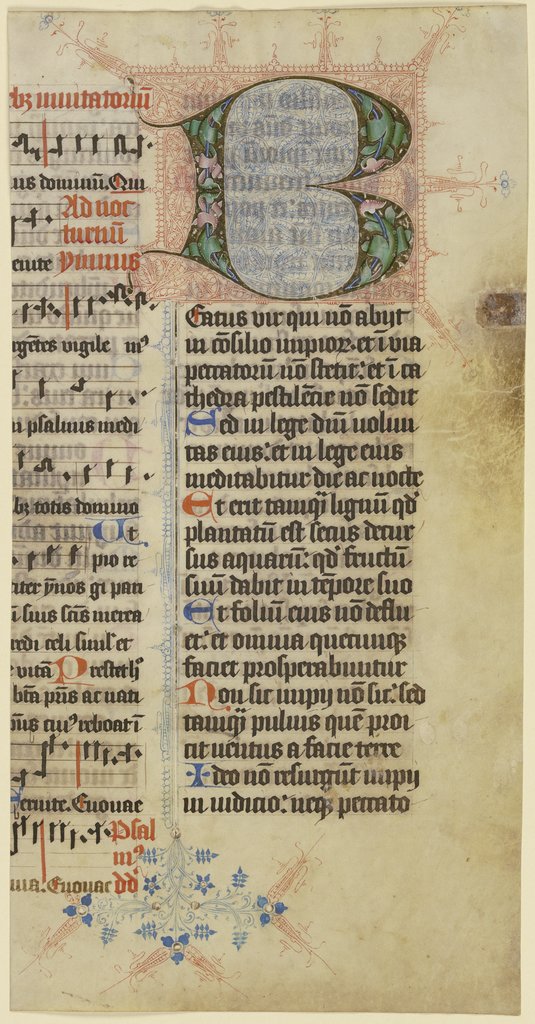 bz inuitatoriū
us dominū. Qui
Ad noc
turnū
enite Primus
rgētes vigile mꝰ
n psalmus medi
bz totis domino
Ut
pio re
iter ymnos gi pari
i suis scīs merea
redi celi simul et
vitā Presta hꝰ
bta pr̄is ac nati
cuiꝰ reboat ī
enite. Euouae
Psal
mꝰ
ma. Euouae dd
Beatus vir qui nō abijt
in cōsilio impior. et ī via
peccatorū nō stetit: et ī ca
thedra pestilētie nō sedit
Sed in lege dn̄i uolun
tas eius: et in lege eius
meditabitur die ac nocte
Et erit tamqͣ lignū qd̓
plantatū est secus decur
sus aquarū: qd̓ fructū
suū dabit in tēpore suo
Et foliū eius nō deflu
et: et omnia quecunqꝫ
faciet prosperabuntur
Non sic impij nō sic: sed
tamqͣ puluis quē proi
cit uentus a facie terre
Ideo nō resurgūt impij
in iudicio: neqꝫ peccato